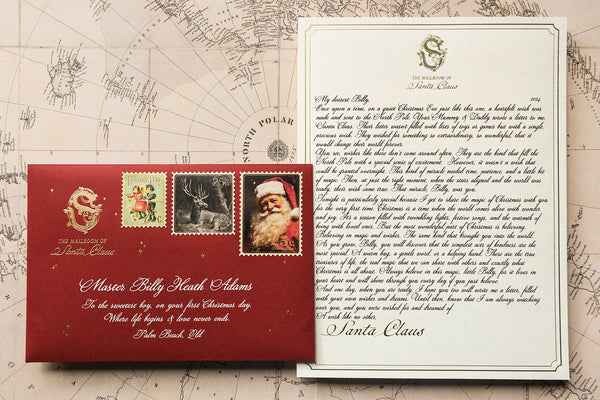 THE MAILROOM OF
Santa Claus
My dearest Billy, 2024
Once upon a time, on a quiet Christmas Eve just like this one, a heartfelt wish was
made and sent to the North Pole. Your Mummy & Daddy wrote a letter to me,
Santa Claus. Their letter wasn't filled with lists of toys or games but with a single,
precious wish. They wished for something so extraordinary, so wonderful, that it
would change their world forever.
You see, wishes like these don't come around often. They are the kind that fill the
North Pole with a special sense of excitement. However, it wasn't a wish that
could be granted overnight. This kind of miracle needed time, patience, and a little bit
of magic. Then, at just the right moment, when the stars aligned and the world was
ready, their wish came true. That miracle, Billy, was you.
Tonight is particularly special because I get to share the magic of Christmas with you
for the very first time. Christmas is a time when the world comes alive with wonder
and joy. It's a season filled with twinkling lights, festive songs, and the warmth of
being with loved ones. But the most wonderful part of Christmas is believing.
Believing in magic and wishes. The same kind that brought you into the world.
As you grow, Billy, you will discover that the simplest acts of kindness are the
most special. A warm hug, a gentle word, or a helping hand. These are the true
treasures of life, the real magic that we can share with others and exactly what
Christmas is all about. Always believe in this magic, little Billy, for it lives in
your heart and will shine through you every day if you just believe.
And one day, when you are ready, I hope you too will write me a letter, filled
with your own wishes and dreams. Until then, know that I am always watching
over you, and you were wished for and dreamed of.
A wish like no other,
Santa Claus
NORTH POLAR
THE MAILROOM OF
Santa Claus
Master Billy Heath Adams
To the sweetest boy, on your first Christmas day.
Where life begins & love never ends.
Palm Beach, Qld